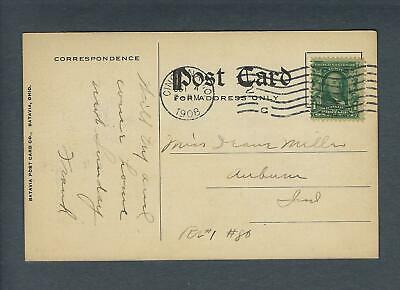 CORRESPONDENCE
Post Card
FOR ADDRESS ONLY
BATAVIA POST CARD CO., BATAVIA, OHIO.
CINCINNATI
1908
C
Will try and
come home
next Sunday
Frank
Miss Diana Miller
Auburn
Ind
RR#1 #80